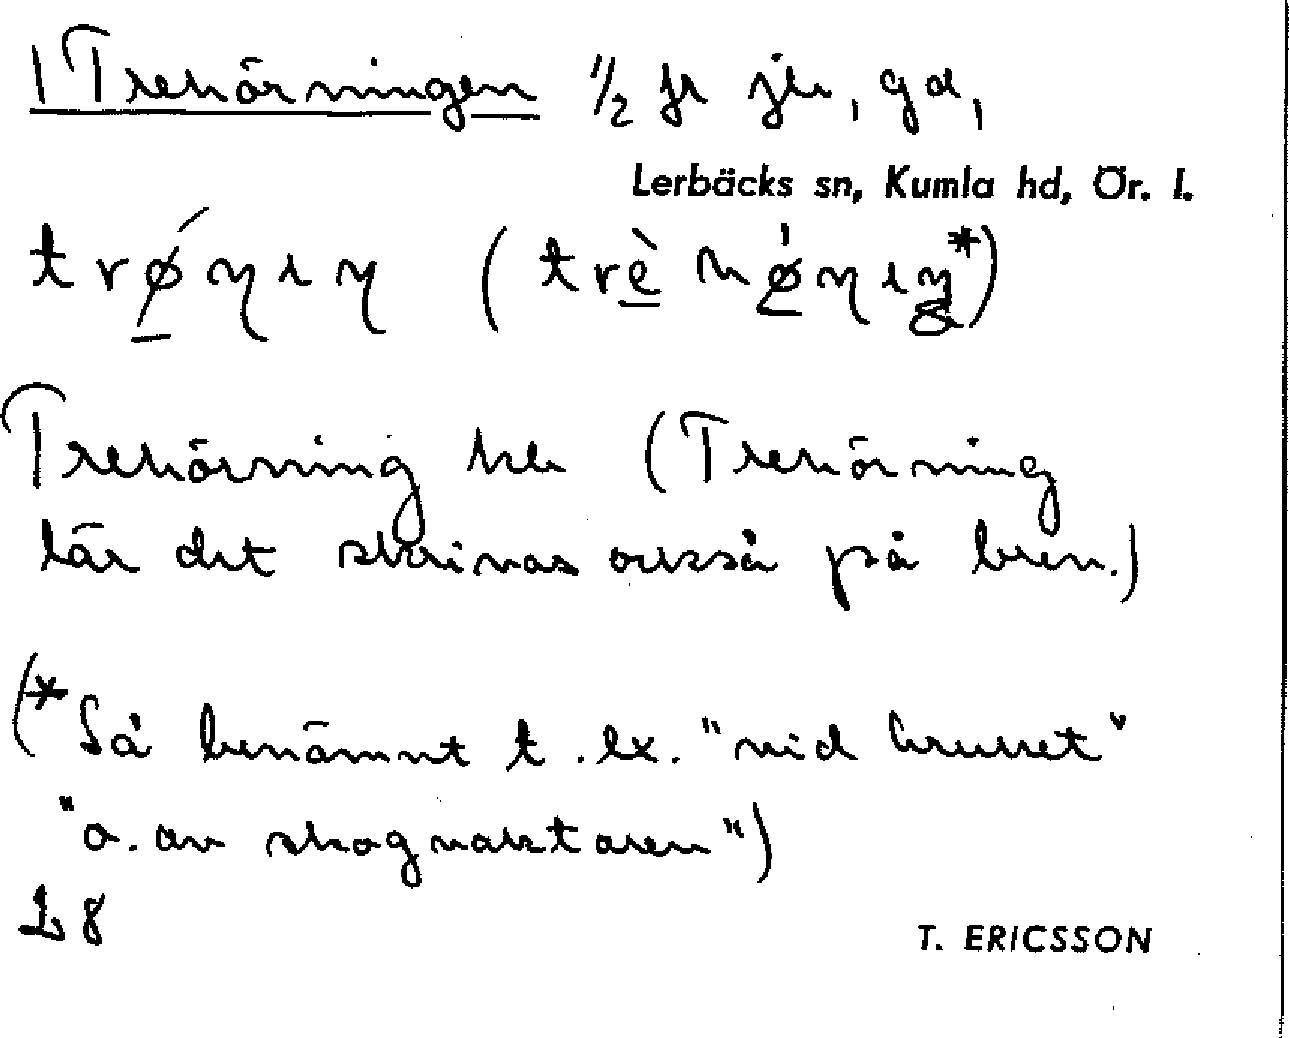 1 Trehörningen 1/2 fr jb, gd,
Lerbäcks sn, Kumla hd, Ör. l.
Trehörning (Trehörning
lär det skrivas också på bren.)
(* Så benämnt t.ex. "vid bruket"
"o. av skogvaktaren")
T. ERICSSON